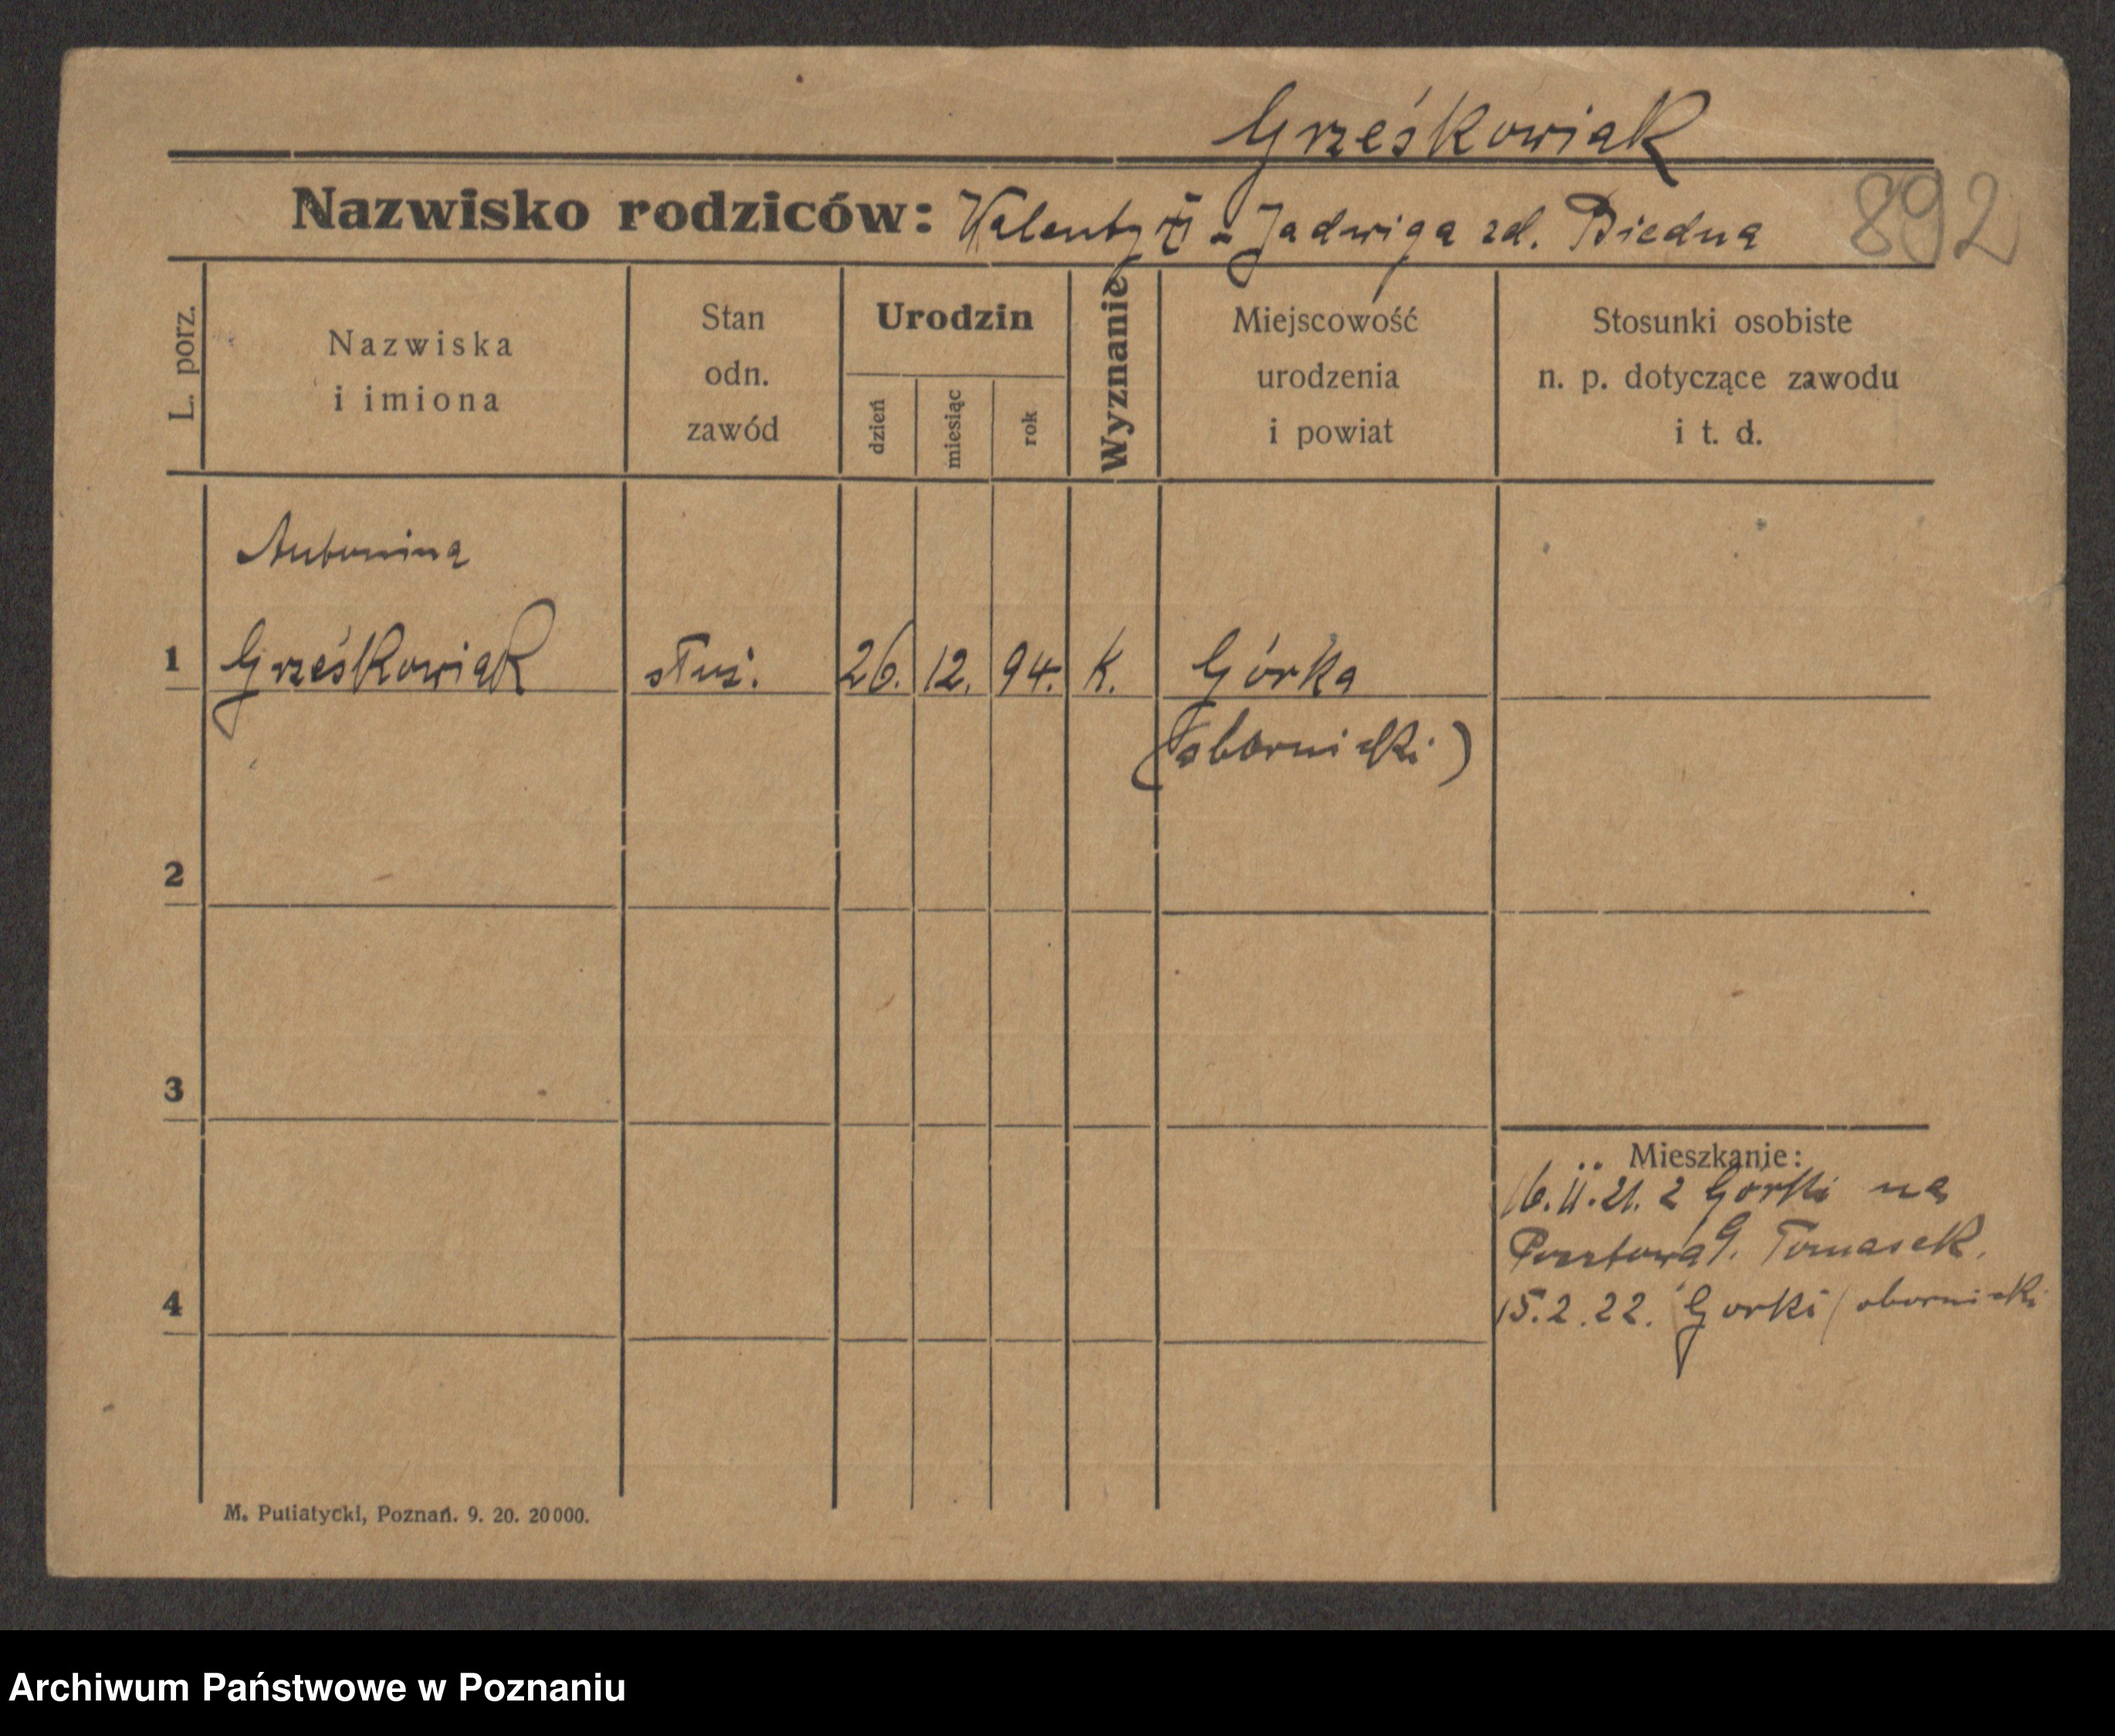 Grześkowiak
Nazwisko rodziców: Walenty i Jadwiga zd. Biedna
892
L. porz.
Nazwiska
i imiona
Stan
odn.
zawód
Urodzin
dzień
miesiąc
rok
Wyznanie
Miejscowość
urodzenia
i powiat
Stosunki osobiste
n. p. dotyczące zawodu
i t. d.
Antonina
1 Grześkowiak służ. 26. 12. 94. k. Górka
(obornicki)
2
3
Mieszkanie:
16.II.21. z Górki na
Pocztowa 9. Tomasek.
4
15.2.22. Gorki / obornicki
M. Putiatycki, Poznań. 9. 20. 20000.
Archiwum Państwowe w Poznaniu